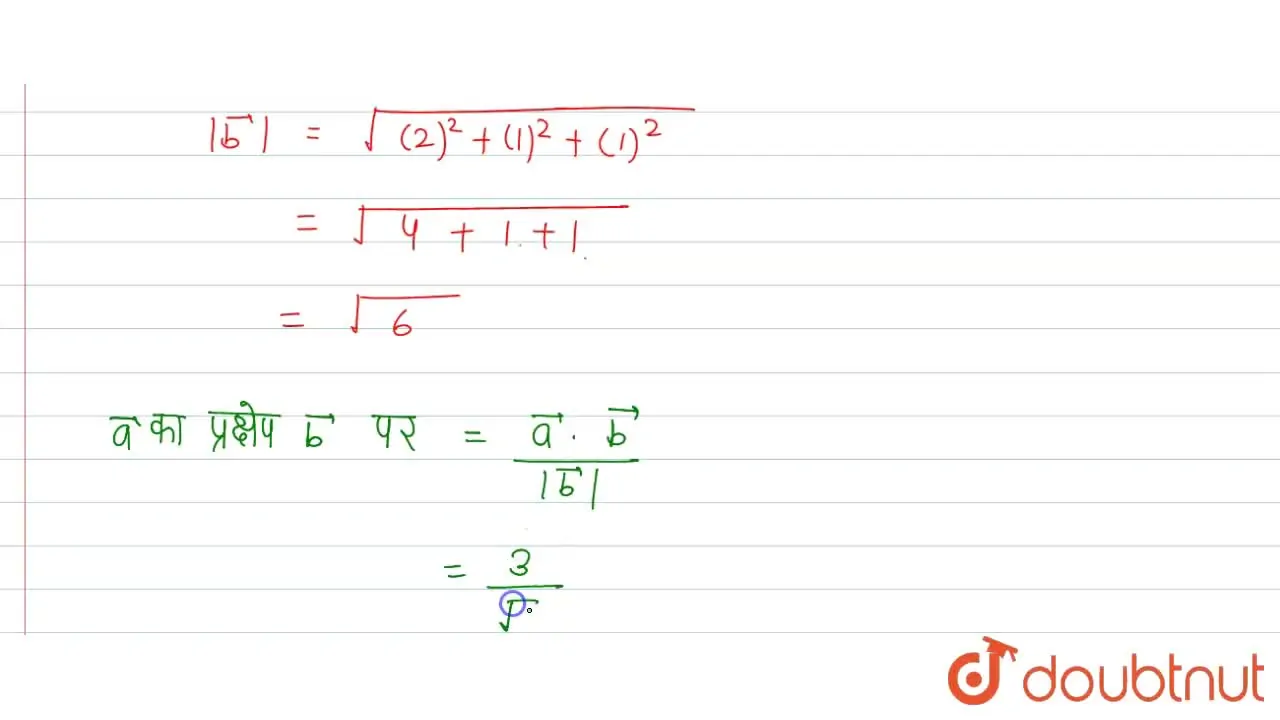 |b⃗| = √(2)² + (1)² + (1)²
= √4 + 1 + 1
= √6
a⃗ का प्रक्षेप b⃗ पर = a⃗ · b⃗ / |b⃗|
= 3 / √
doubtnut